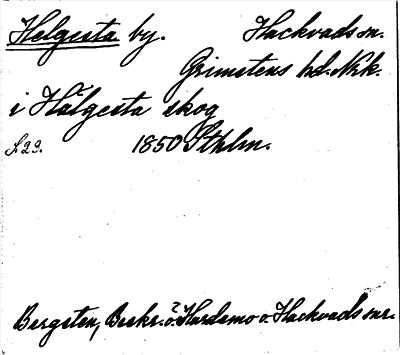 Helgesta by. Hackvads sn.
Grimstens hd. Nrk.
i Hälgesta skog
s. 29. 1850 Sthlm.
Bergsten, Beskr. ö. Hardemo o. Hackvads snr.